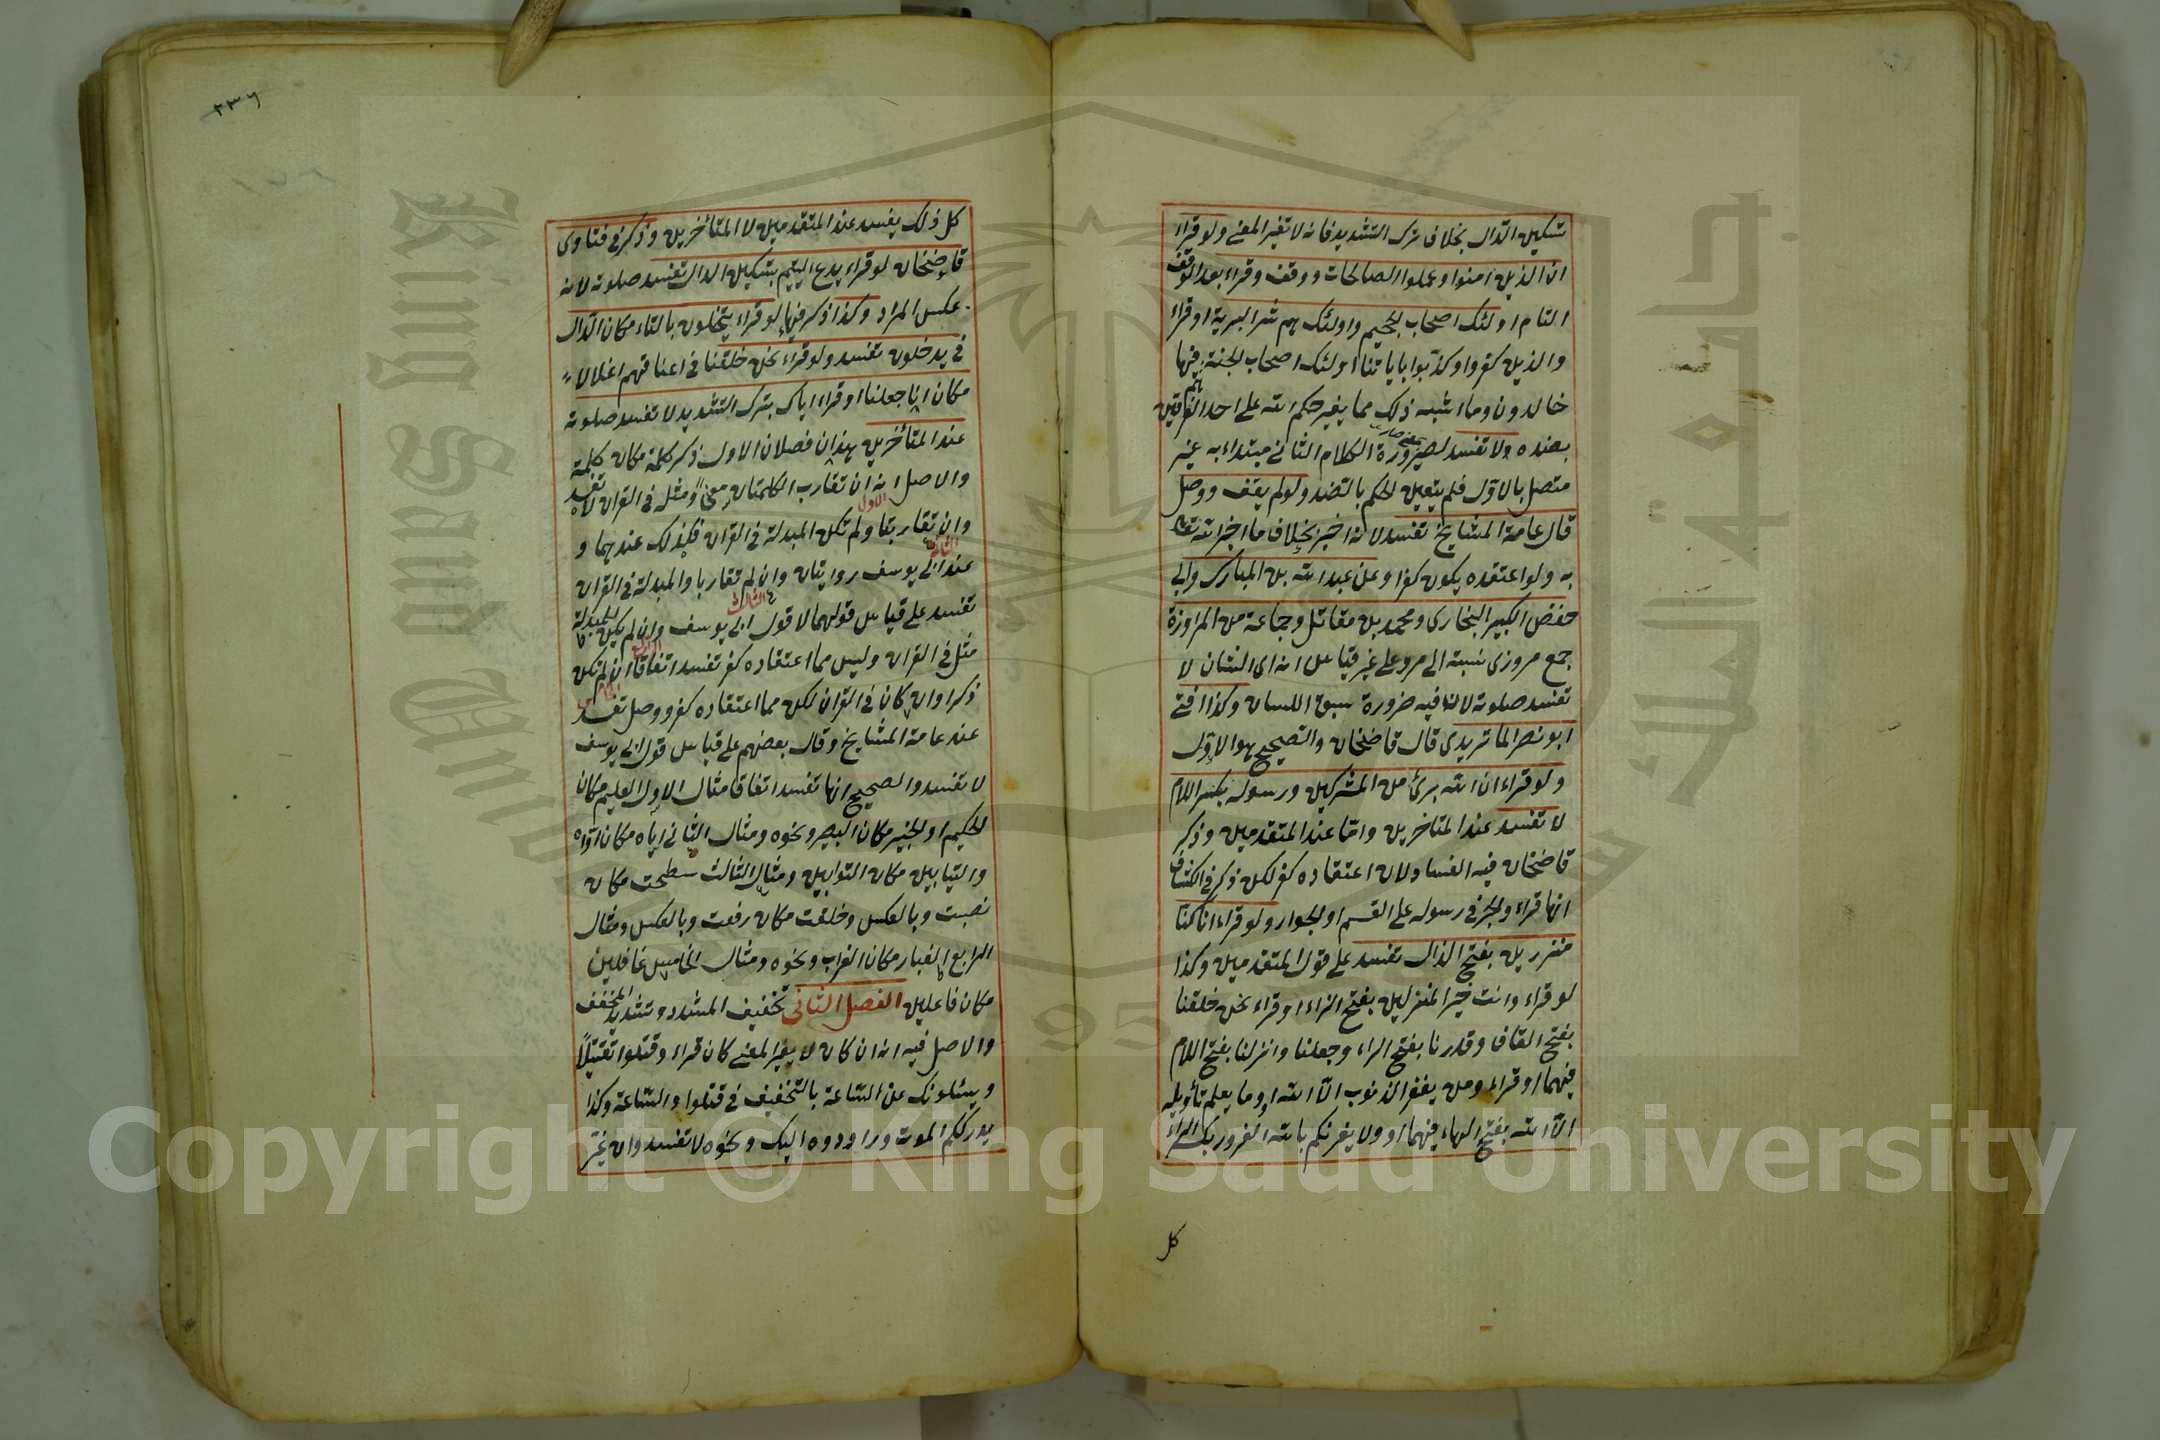 تسكين الدال بخلاف ترك التشديد فانه لا تغير المعنى ولو قراء
ان الذين امنوا وعملوا الصالحات ووقف وقراء بعد الوقف
التام اولئك اصحاب الجحيم واولئك هم شر البرية او قراء
والذين كفروا وكذبوا باياتنا اولئك اصحاب الجنة هم فيها
خالدون وما اشبه ذلك مما يغير حكم الله على احد الفريقين
بضده ولا تفسد لصيرورة الكلام الثاني مبتداء به غير
متصل بالاول فلم يتعين الحكم بالضد ولو لم يقف ووصل
قال عامة المشايخ تفسد لانه اخبر بخلاف ما اخبر الله تعا
به ولو اعتقده يكون كفرا وعن عبد الله بن المبارك وابي
حفص الكبير البخاري ومحمد بن مقاتل وجماعة من المراوزة
جمع مروزى نسبة الى مرو على غير قياس انه اى الشان لا
تفسد صلوته لان فيه ضرورة سبق اللسان وكذا افتى
ابو نصر الماتريدى قال قاضخان والصحيح هو الاول
ولو قراء ان الله برئ من المشركين ورسوله بكسر اللام
لا تفسد عند المتاخرين واما عند المتقدمين وذكر
قاضخان فيه الفساد لان اعتقاده كفر لكن ذكر فى الكشاف
انها قراء والجر فى رسوله على القسم او الجوار ولو قراء انا كنا
منذرين بفتح الذال تفسد على قول المتقدمين وكذا
لو قراء وانت خير المنزلين بفتح الزاء او قراء نحن خلقنا
بفتح القاف وقدرنا بفتح الراء وجعلنا وانزلنا بفتح اللام
فيهما او قراء ومن يغفر الذنوب الا الله او وما يعلم تأويله
الا الله بفتح الهاء فيهما او ولا يغرنكم بالله الغرور بكسر الراء
كل
٢٣٦
كل ذلك يفسد عند المتقدمين لا المتأخرين وذكر فى فتاوى
قاضخان لو قراء يدع اليتيم بتسكين الدال تفسد صلوته لانه
عكس المراد وكذا ذكر فيها لو قراء يتخلون بالتاء مكان الدال
فى يدخلون تفسد ولو قراء نحن خلقنا فى اعناقهم اغلالا
مكان انا جعلنا او قراء اياك بترك التشديد لا تفسد صلوته
عند المتأخرين هذان فصلان الاول ذكر كلمة مكان كلمة
والاصل انه ان تقارب الكلمتان معنى ومثله فى القران لا تفسد
الاول
وان تقاربتا ولم تكن المبدلة فى القران فكذلك عندهما و
الثانى
عند ابى يوسف روايتان وان لم تقاربا والمبدلة فى القران
الثالث
تفسد على قياس قولهما لا قول ابى يوسف وان لم يكن للمبدلة
الرابع
مثل فى القران وليس مما اعتقاده كفر تفسد اتفاقا ان لم تكن
ذكرا وان كان فى القران لكن مما اعتقاده كفر ووصل تفسد
عند عامة المشايخ وقال بعضهم على قياس قول ابى يوسف
لا تفسد والصحيح انها تفسد اتفاقا مثال الاول العليم مكان
الحكيم او الخبير مكان البصير ونحوه ومثال الثانى اياه مكان اواه
والتيابين مكان التوابين ومثال الثالث سطحت مكان
نصبت وبالعكس وخلقت مكان رفعت وبالعكس ومثال
الرابع الغبار مكان الغراب ونحوه ومثال الخامس غافلين
مكان فاعلين الفصل الثانى تخفيف المشدد وتشديد المخفف
والاصل فيه انه ان كان لا يغير المعنى كان قراء وقتلوا تقتيلا
ويسئلونك عن الساعة بالتخفيف فى قتلوا والساعة وكذا
يدرككم الموت وراودوه اليك ونحوه لا تفسد وان غير
King Saud University
Copyright © King Saud University